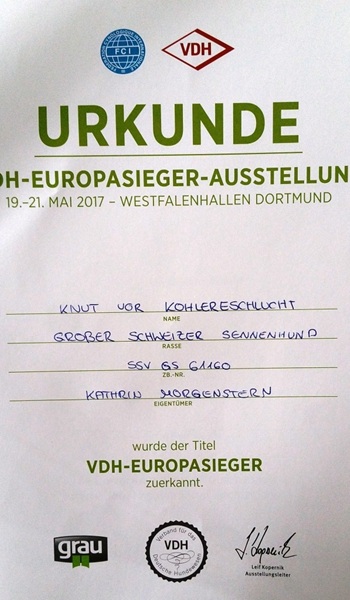 FCI
VDH
URKUNDE
DH-EUROPASIEGER-AUSSTELLUN
19.–21. MAI 2017 – WESTFALENHALLEN DORTMUND
KNUT VOR KOHLERESCHLUCHT
NAME
GROßER SCHWEIZER SENNENHUND
RASSE
SSV GS 61160
ZB.-NR.
KATHRIN MORGENSTERN
EIGENTÜMER
wurde der Titel
VDH-EUROPASIEGER
zuerkannt.
grau
Verband für das
VDH
Deutsche Hundewesen
Leif Kopernik
Ausstellungsleiter